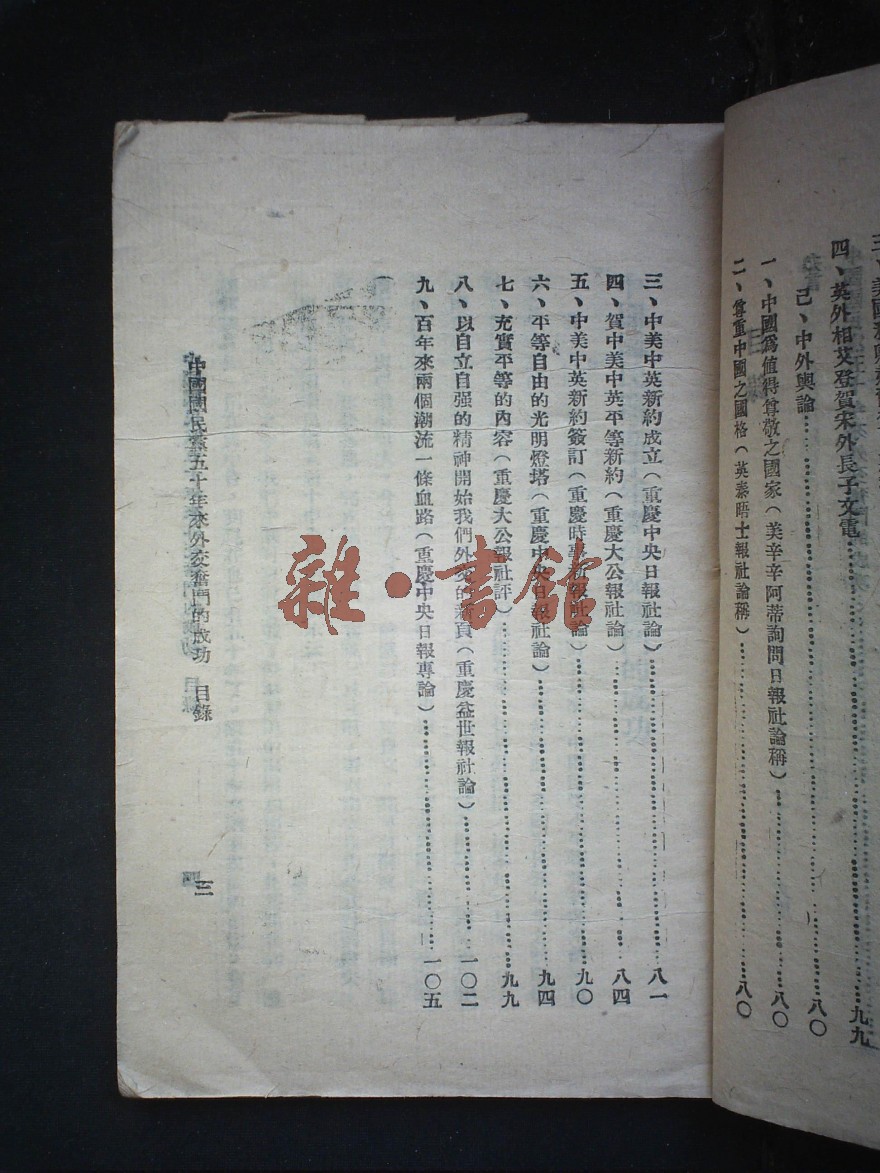 四、英外相艾登賀宋外長子文電……九九
己、中外輿論……八〇
一、中國爲值得尊敬之國家(美辛辛阿蒂詢問日報社論稱)……八〇
二、尊重中國之國格(英泰晤士報社論稱)……八〇
三、中美中英新約成立(重慶中央日報社論)……八一
四、賀中美中英平等新約(重慶大公報社論)……八四
五、中美中英新約簽訂(重慶時事新報社論)……九〇
六、平等自由的光明燈塔(重慶中央日報社論)……九四
七、充實平等的內容(重慶大公報社評)……九九
八、以自立自强的精神開始我們外交的新頁(重慶益世報社論)……一〇二
九、百年來兩個潮流一條血路(重慶中央日報專論)……一〇五
中國國民黨五十年來外交奮鬥的成功 目錄
三
雜·書館